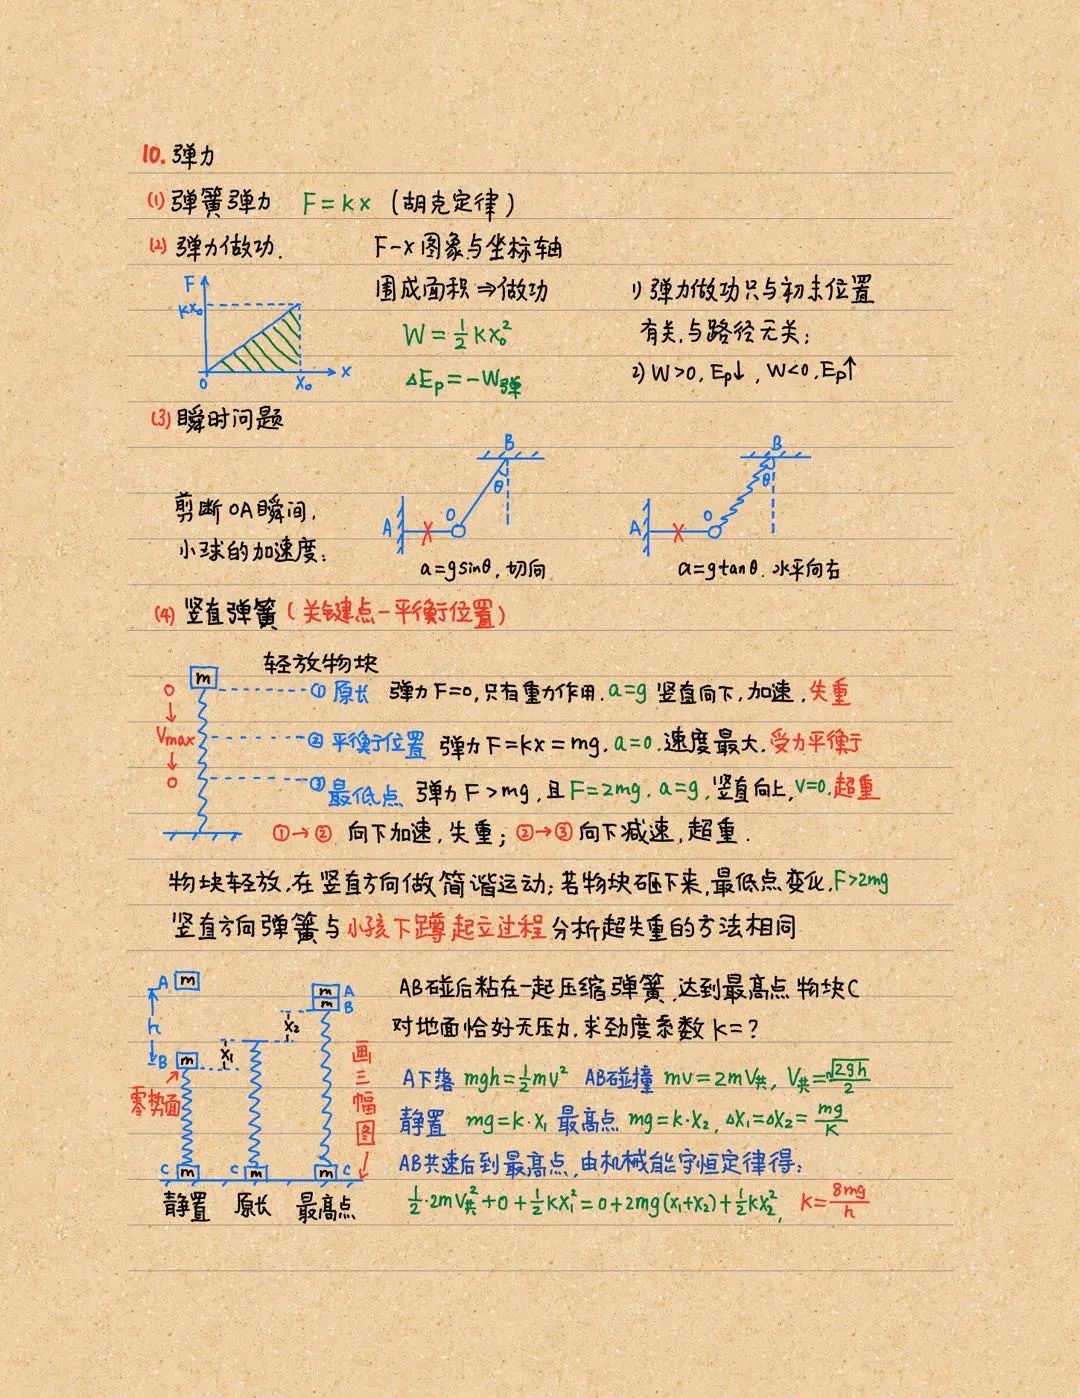 10. 弹力
(1) 弹簧弹力 F=kx (胡克定律)
(2) 弹力做功. F-x 图象与坐标轴
围成面积⇒做功
W=½kx₀²
ΔEp=-W弹
1) 弹力做功只与初末位置
有关,与路径无关;
2) W>0, Ep↓, W<0, Ep↑
F
kx₀
0 x₀ x
(3) 瞬时问题
剪断OA瞬间,
小球的加速度:
B
θ
A O
a=gsinθ, 切向
B
θ
A O
a=gtanθ. 水平向右
(4) 竖直弹簧 (关键点-平衡位置)
轻放物块
m
0
↓
Vmax
↓
0
① 原长 弹力F=0,只有重力作用, a=g 竖直向下,加速,失重
② 平衡位置 弹力F=kx=mg, a=0. 速度最大. 受力平衡
③ 最低点 弹力F>mg,且F=2mg. a=g, 竖直向上, V=0, 超重
①→② 向下加速,失重; ②→③ 向下减速,超重.
物块轻放,在竖直方向做简谐运动;若物块砸下来,最低点变化,F>2mg
竖直方向弹簧与小孩下蹲起立过程分析超失重的方法相同
A m
h
B m
零势面
x₁
x₂
m A
m B
画三幅图
C m C m m C
静置 原长 最高点
AB碰后粘在一起压缩弹簧,达到最高点物块C
对地面恰好无压力,求劲度系数k=?
A下落 mgh=½mv² AB碰撞 mv=2mV共, V共=√2gh/2
静置 mg=k·x₁ 最高点 mg=k·x₂, Δx₁=Δx₂=mg/k
AB共速后到最高点,由机械能守恒定律得:
½·2mV共²+0+½kx₁²=0+2mg(x₁+x₂)+½kx₂², k=8mg/h